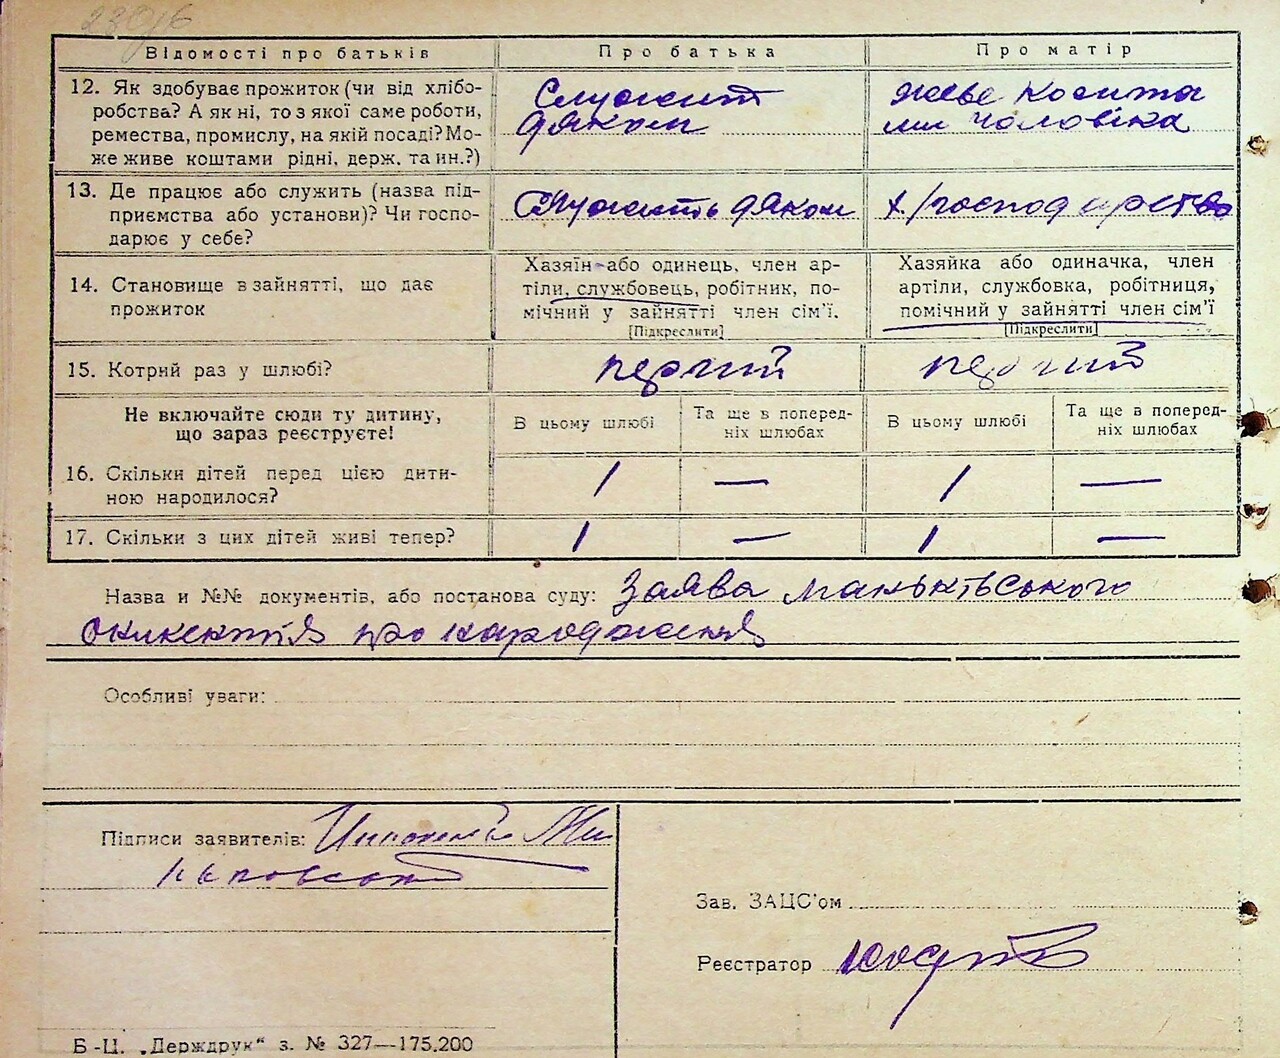 Відомості про батьків
Про батька
Про матір
12. Як здобуває прожиток (чи від хлібо-
робства? А як ні, то з якої саме роботи,
ремества, промислу, на якій посаді? Мо-
же живе коштами рідні, держ. та ин.?)
Служит
дяком
живе кошта
ми чоловіка
13. Де працює або служить (назва під-
приємства або установи)? Чи госпо-
дарює у себе?
Служить дяком
х/господарство
14. Становище в зайнятті, що дає
прожиток
Хазяїн або одинець, член ар-
тіли, службовець, робітник, по-
мічний у зайнятті член сім'ї.
[Підкреслити]
Хазяйка або одиначка, член
артіли, службовка, робітниця,
помічний у зайнятті член сім'ї
[Підкреслити]
15. Котрий раз у шлюбі?
первий
первий
Не включайте сюди ту дитину,
що зараз реєструєте!
В цьому шлюбі
Та ще в поперед-
ніх шлюбах
В цьому шлюбі
Та ще в поперед-
ніх шлюбах
16. Скільки дітей перед цією дити-
ною народилося?
1 — 1 —
17. Скільки з цих дітей живі тепер?
1 — 1 —
Назва и №№ документів, або постанова суду: Заява Маньківського
про народження
Особливі уваги:
Підписи заявителів:
Зав. ЗАЦС'ом
Реєстратор
Б-Ц. „Держдрук“ з. № 327—175.200